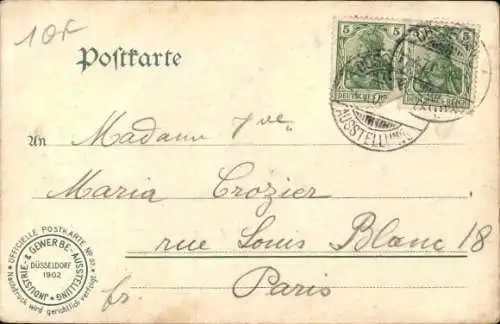 10F
Postkarte
5 5
DEUTSCHES REICH
AUSSTELLUNG
An Madame Vve
Maria Crozier
rue Louis Blanc 18
Paris
fr.
OFFICIELLE POSTKARTE No
INDUSTRIE- & GEWERBE-AUSSTELLUNG
DÜSSELDORF
1902
Nachdruck wird gerichtlich verfolgt